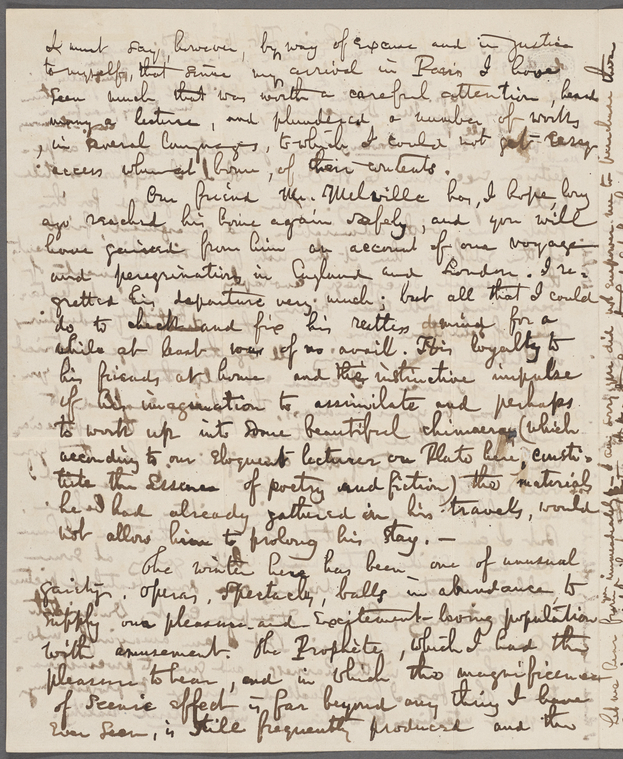 I must say, however, by way of excuse and in justice
to myself, that since my arrival in Paris I have
seen much that was worth a careful attention, heard
many a lecture, and plundered a number of works
, in several languages, to which I could not get easy
access when at home, of their contents.
Our friend Mr. Melville has, I hope, long
ago reached his home again safely, and you will
have gained from him an account of our voyage
and peregrinations in England and London. I re-
gretted his departure very much; but all that I could
do to check and fix his restless mind for a
while at least was of no avail. His loyalty to
his friends at home and the instinctive impulse
of his imagination to assimilate and perhaps
to work up into some beautiful chimaeras (which
according to our eloquent lecturer on Plato here, consti-
tute the essence of poetry and fiction) the materials
he had already gathered in his travels, would
not allow him to prolong his stay. —
The winter here has been one of unusual
gaiety. Operas, spectacles, balls in abundance to
supply our pleasure and excitement-loving population
with amusement. The Prophète, which I had the
pleasure to hear, and in which the magnificence
of scenic effect is far beyond any thing I have
ever seen, is still frequently produced and the